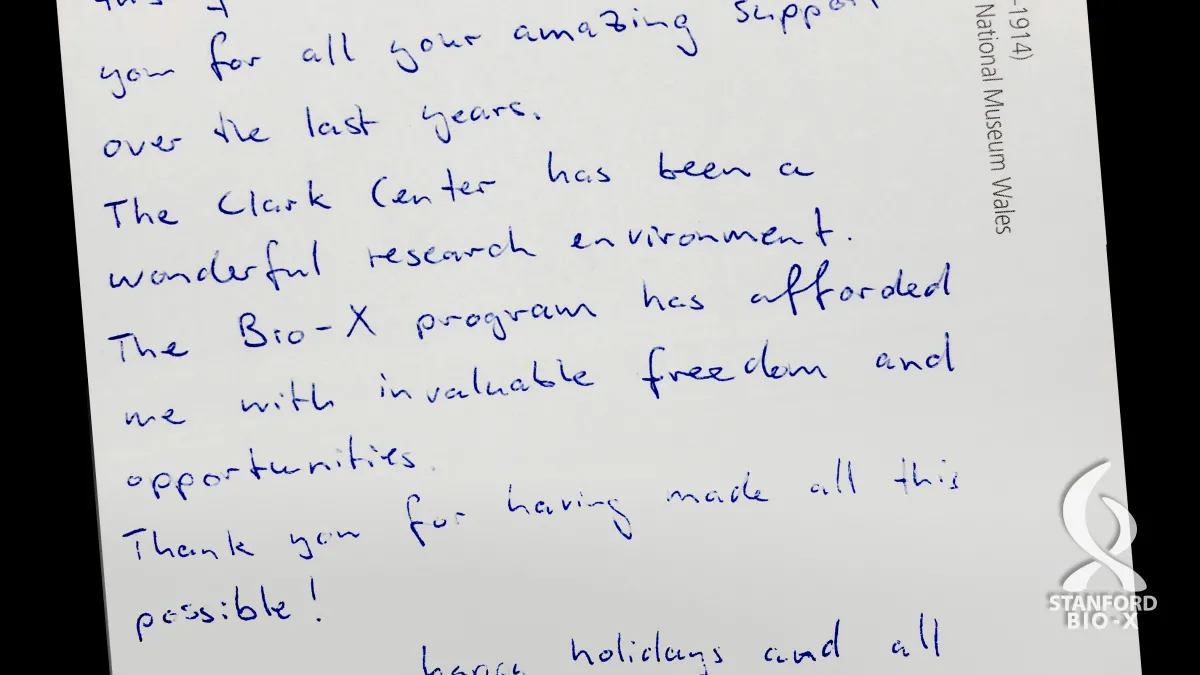 this
you for all your amazing support
over the last years.
The Clark Center has been a
wonderful research environment.
The Bio-X program has afforded
me with invaluable freedom and
opportunities.
Thank you for having made all this
possible!
holidays and all
-1914)
National Museum Wales
STANFORD
BIO-X